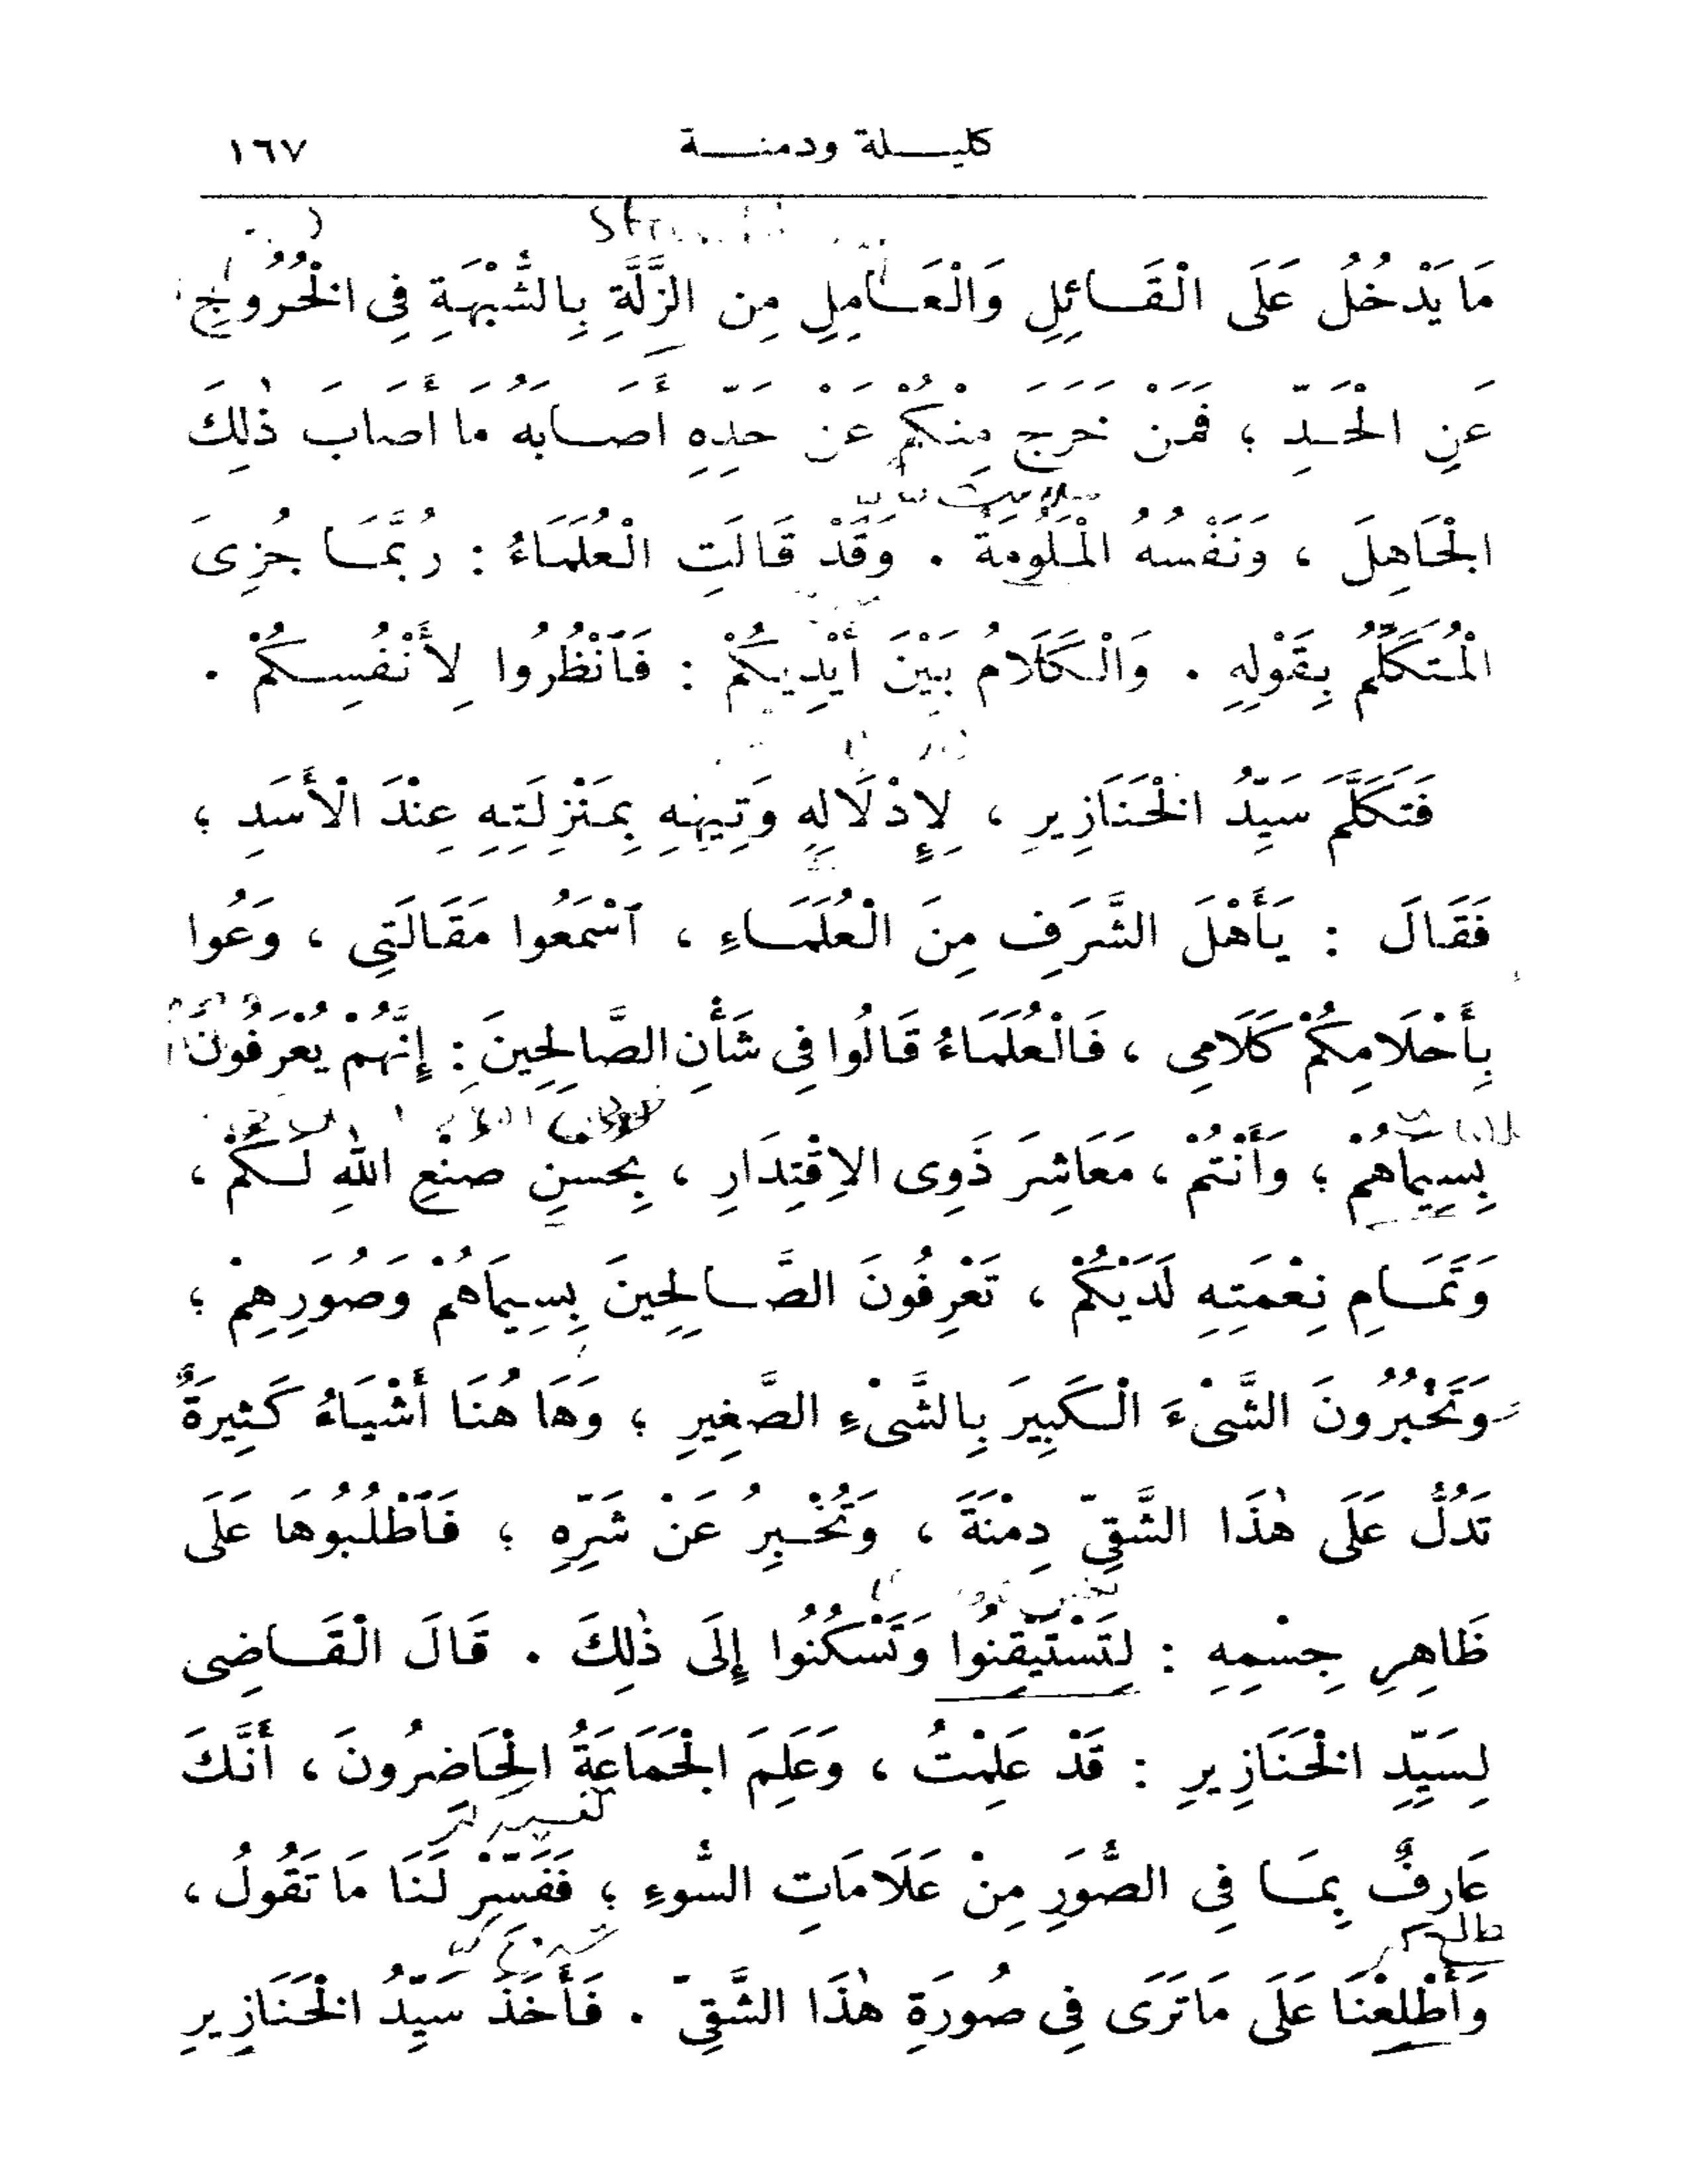 كليلة ودمنة ١٦٧
مَا يَدْخُلُ عَلَى الْقَائِلِ وَالْعَامِلِ مِن الزَّلَّةِ بِالشُّبْهَةِ فِى الْخُرُوجِ
عَنِ الْحَدِّ ؛ فَمَنْ خَرَجَ مِنْكُمْ عَنْ حَدِّهِ أَصَابَهُ مَا أَصَابَ ذٰلِكَ
الْجَاهِلَ ، وَنَفْسُهُ الْمَلُومَةُ . وَقَدْ قَالَتِ الْعُلَمَاءُ : رُبَّمَا جُزِىَ
الْمُتَكَلِّمُ بِقَوْلِهِ . وَالْكَلَامُ بَيْنَ أَيْدِيكُمْ : فَٱنْظُرُوا لِأَنْفُسِكُمْ .
فَتَكَلَّمَ سَيِّدُ الْخَنَازِيرِ ، لِإِدْلَالِهِ وَتِيهِهِ بِمَنْزِلَتِهِ عِنْدَ الْأَسَدِ ؛
فَقَالَ : يَأَهْلَ الشَّرَفِ مِنَ الْعُلَمَاءِ ، ٱسْمَعُوا مَقَالَتِى ، وَعُوا
بِأَحْلَامِكُمْ كَلَامِى ، فَالْعُلَمَاءُ قَالُوا فِى شَأْنِ الصَّالِحِينَ : إِنَّهُمْ يُعْرَفُونَ
بِسِيمَاهُمْ ؛ وَأَنْتُمْ ، مَعَاشِرَ ذَوِى الاِقْتِدَارِ ، بِحُسْنِ صُنْعِ اللهِ لَكُمْ ،
وَتَمَامِ نِعْمَتِهِ لَدَيْكُمْ ، تَعْرِفُونَ الصَّالِحِينَ بِسِيمَاهُمْ وَصُوَرِهِمْ ؛
وَتَخْبُرُونَ الشَّىْءَ الْكَبِيرَ بِالشَّىْءِ الصَّغِيرِ ؛ وَهَا هُنَا أَشْيَاءُ كَثِيرَةٌ
تَدُلُّ عَلَى هٰذَا الشَّقِىِّ دِمْنَةَ ، وَتُخْبِرُ عَنْ شَرِّهِ ؛ فَٱطْلُبُوهَا عَلَى
ظَاهِرِ جِسْمِهِ : لِتَسْتَيْقِنُوا وَتَسْكُنُوا إِلَى ذٰلِكَ . قَالَ الْقَاضِى
لِسَيِّدِ الْخَنَازِيرِ : قَدْ عَلِمْتُ ، وَعَلِمَ الْجَمَاعَةُ الْحَاضِرُونَ ، أَنَّكَ
عَارِفٌ بِمَا فِى الصُّوَرِ مِنْ عَلَامَاتِ السُّوءِ ؛ فَفَسِّرْ لَنَا مَا تَقُولُ ،
وَأَطْلِعْنَا عَلَى مَا تَرَى فِى صُورَةِ هٰذَا الشَّقِىِّ . فَأَخَذَ سَيِّدُ الْخَنَازِيرِ